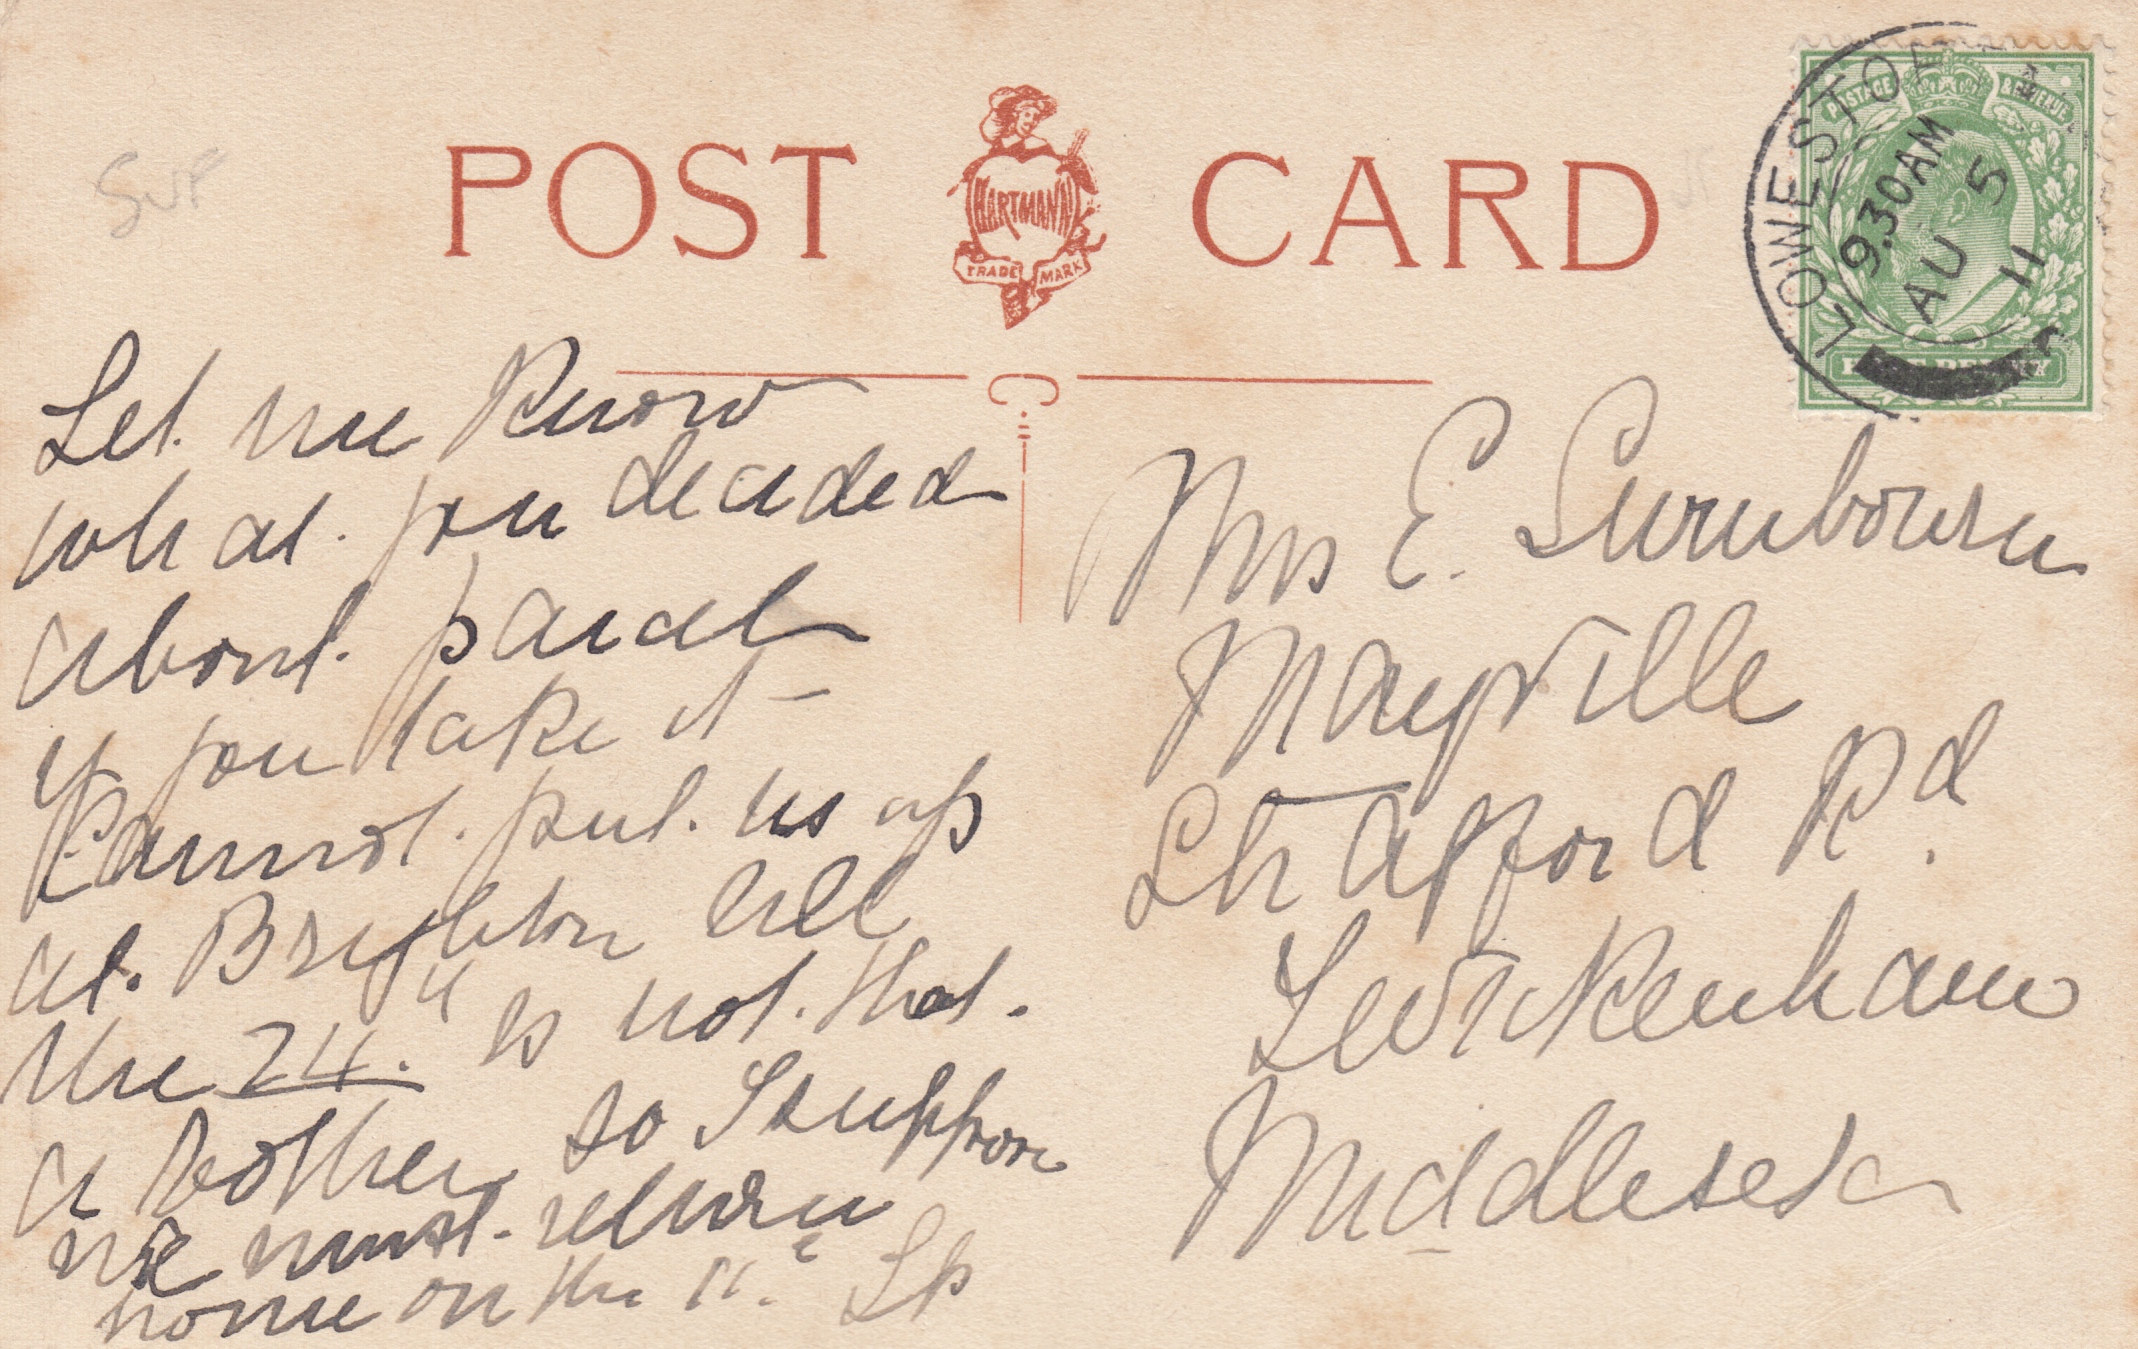 Suf
POST CARD
HARTMANN
TRADE MARK
POSTAGE & REVENUE
LOWESTOFT
9.30AM
AU 5
11
Let me know
what you decided
about parcel
if you take it –
Cannot put us up
at Brighton till
the 24. Is not that
a bother so I suppose
we must return
home on the 11.
Mrs E.
Mayville
Strafford Rd.
Twickenham
Middlesex